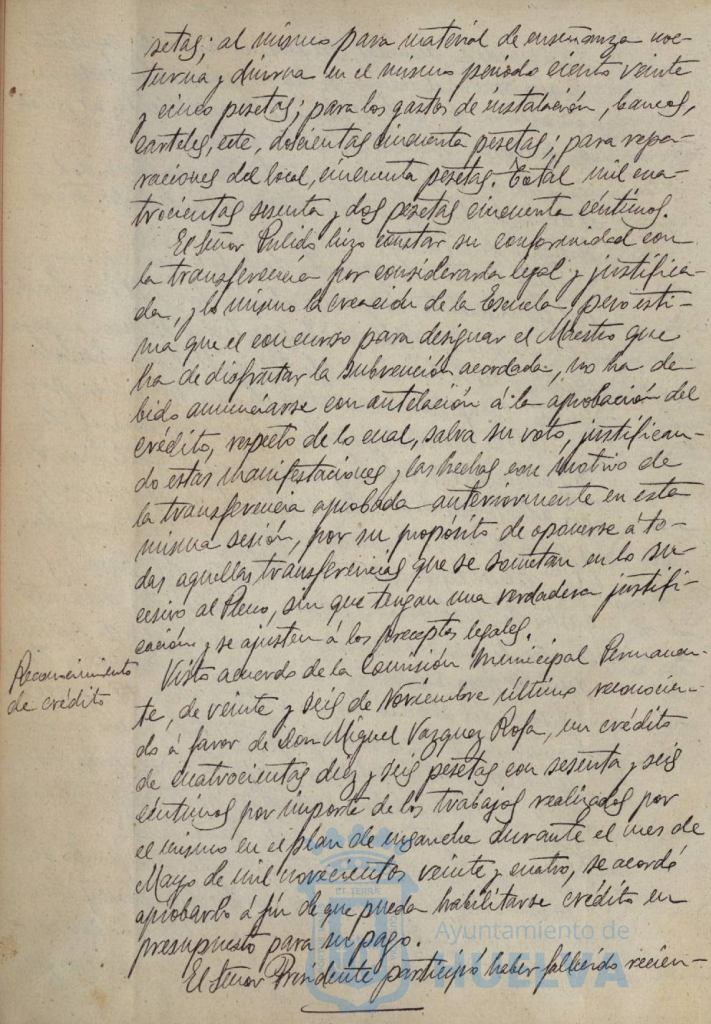 setas; al mismo para material de enseñanza noc-
turna y diurna en el mismo periodo ciento veinte
y cinco pesetas; para los gastos de instalación, bancos,
carteles, etc, doscientas cincuenta pesetas; para repa-
raciones del local, cincuenta pesetas. Total mil cua-
trocientas sesenta y dos pesetas cincuenta céntimos.
El Señor Pulido hizo constar su conformidad con
la transferencia por considerarla legal y justifica-
da, y lo mismo la creación de la Escuela, pero esti-
ma que el concurso para designar el Maestro que
ha de disfrutar la subvención acordada, no ha de-
bido anunciarse con antelación á la aprobación del
crédito, respecto de lo cual, salva su voto, justifican-
do estas manifestaciones y las hechas con motivo de
la transferencia aprobada anteriormente en esta
misma sesión, por su propósito de oponerse á to-
das aquellas transferencias que se sometan en lo su-
cesivo al Pleno, sin que tengan una verdadera justifi-
cación y se ajusten á los preceptos legales.
Reconocimiento
de crédito
Visto acuerdo de la Comisión Municipal Permanen-
te, de veinte y seis de Noviembre último reconocien-
do á favor de Don Miguel Vazquez Rofa, un crédito
de cuatrocientas diez y seis pesetas con sesenta y seis
céntimos por importe de los trabajos realizados por
el mismo en el plan de ensanche durante el mes de
Mayo de mil novecientos veinte y cuatro, se acordó
aprobarlo á fin de que pueda habilitarse crédito en
presupuesto para su pago.
El Señor Presidente participó haber fallecido recien-
Ayuntamiento de
HUELVA